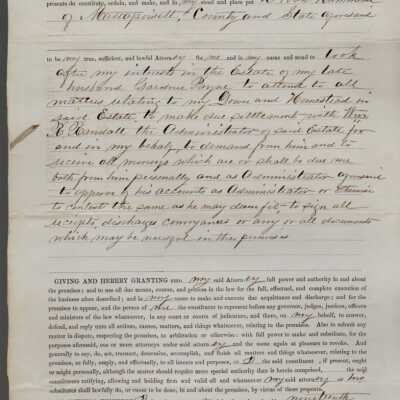 presents do constitute, ordain, and make, and in my stead and place put
of Mattapoisett, County and State aforesaid
to be my true, sufficient, and lawful Attorney for me and in my name and stead to look
after my interest in the Estate of my late
husband Gardner Payne to attend to all
matters relating to my Dower and Homestead in
said Estate, to make due settlement with
Randall the Administrator of said Estate for
and in my behalf to demand from him and to
receive all moneys which are or shall be due me
both from him personally and as Administrator aforesaid
to approve of his accounts as Administrator or otherwise
to contest the same as he may deem fit, to sign all
receipts, discharges conveyances or any or all documents
which may be needful in the premises
GIVING AND HEREBY GRANTING unto my said Attorney full power and authority in and about
the premises; and to use all due means, course, and process in the law for the full, effectual, and complete execution of
the business afore described; and in my name to make and execute due acquittance and discharge; and for the
premises to appear, and the person of me the constituent to represent before any governor, judges, justices, officers
and ministers of the law whatsoever, in any court or courts of judicature, and there, on my behalf, to answer,
defend, and reply unto all actions, causes, matters, and things whatsoever, relating to the premises. Also to submit any
matter in dispute, respecting the premises, to arbitration or otherwise: with full power to make and substitute, for the
purposes aforesaid, one or more attorneys under said attorney and the same again at pleasure to revoke. And
generally to say, do, act, transact, determine, accomplish, and finish all matters and things whatsoever, relating to the
premises, as fully, amply, and effectually, to all intents and purposes, as I the said constituent, if present, ought
or might personally, although the matter should require more special authority than is herein comprised, the said
constituent ratifying, allowing and holding firm and valid all and whatsoever my said attorney or his
substitutes shall lawfully do, or cause to be done, in and about the premises, by virtue of these presents.
nineteenth